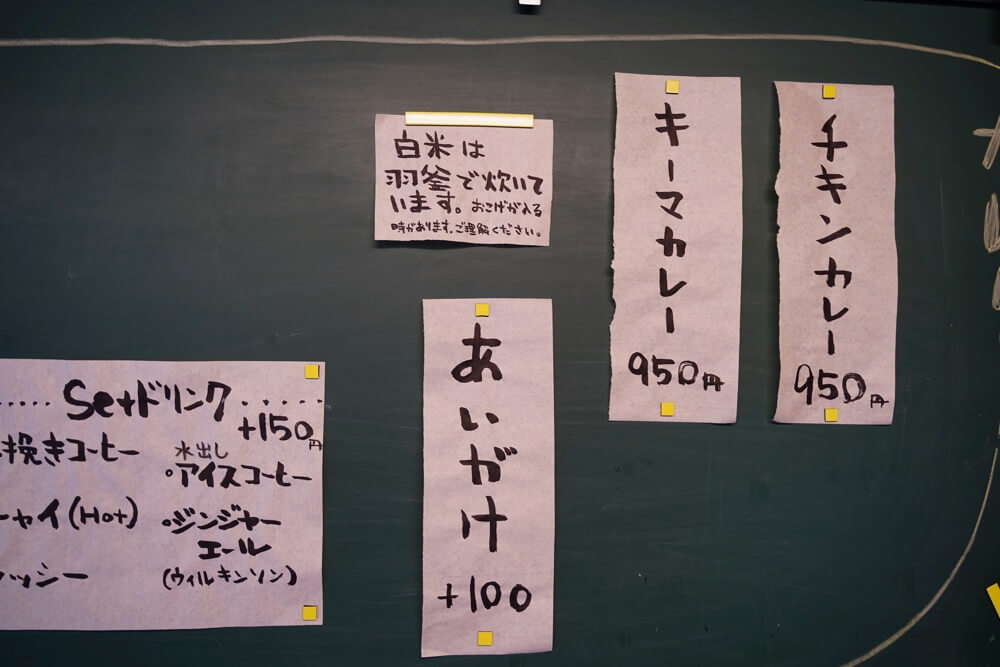 チキンカレー
950円
キーマカレー
950円
白米は
羽釜で炊いて
います。おこげが入る
時があります。ご理解ください。
あいがけ
+100
Setドリンク
+150円
挽きコーヒー
水出し
・アイスコーヒー
チャイ(Hot)
・ジンジャー
エール
(ウィルキンソン)
ラッシー